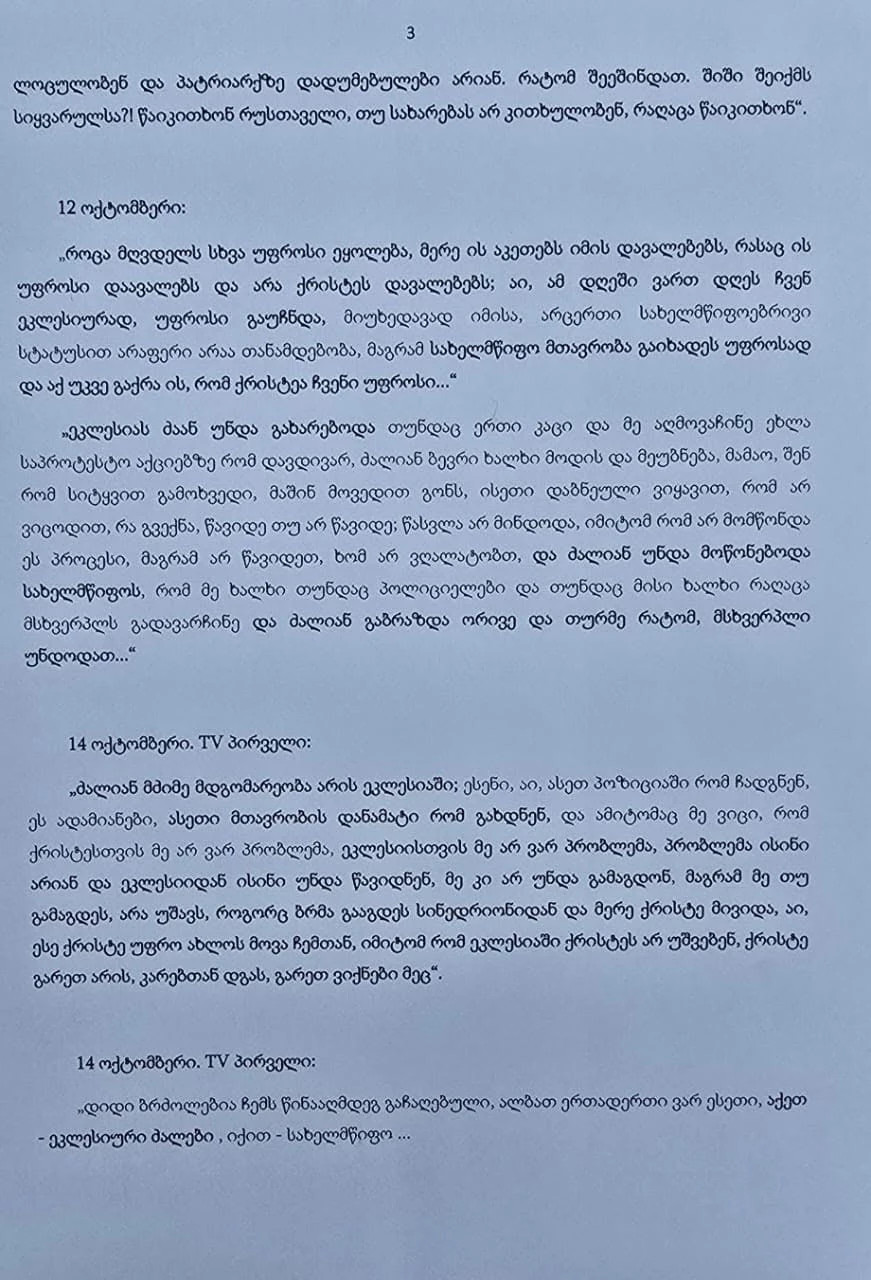 3
ლოცულობენ და პატრიარქზე დადუმებულები არიან. რატომ შეეშინდათ. შიში შეიქმს
სიყვარულსა?! წაიკითხონ რუსთაველი, თუ სახარებას არ კითხულობენ, რაღაცა წაიკითხონ“.
12 ოქტომბერი:
„როცა მღვდელს სხვა უფროსი ეყოლება, მერე ის აკეთებს იმის დავალებებს, რასაც ის
უფროსი დაავალებს და არა ქრისტეს დავალებებს; აი, ამ დღეში ვართ დღეს ჩვენ
ეკლესიურად, უფროსი გაუჩნდა, მიუხედავად იმისა, არცერთი სახელმწიფოებრივი
სტატუსით არაფერი არაა თანამდებობა, მაგრამ სახელმწიფო მთავრობა გაიხადეს უფროსად
და აქ უკვე გაქრა ის, რომ ქრისტეა ჩვენი უფროსი...“
„ეკლესიას ძაან უნდა გახარებოდა თუნდაც ერთი კაცი და მე აღმოვაჩინე ეხლა
საპროტესტო აქციებზე რომ დავდივარ, ძალიან ბევრი ხალხი მოდის და მეუბნება, მამაო, შენ
რომ სიტყვით გამოხვედი, მაშინ მოვედით გონს, ისეთი დაბნეული ვიყავით, რომ არ
ვიცოდით, რა გვექნა, წავიდე თუ არ წავიდე; წასვლა არ მინდოდა, იმიტომ რომ არ მომწონდა
ეს პროცესი, მაგრამ არ წავიდეთ, ხომ არ ვღალატობთ, და ძალიან უნდა მოწონებოდა
სახელმწიფოს, რომ მე ხალხი თუნდაც პოლიციელები და თუნდაც მისი ხალხი რაღაცა
მსხვერპლს გადავარჩინე და ძალიან გაბრაზდა ორივე და თურმე რატომ, მსხვერპლი
უნდოდათ...“
14 ოქტომბერი. TV პირველი:
„ძალიან მძიმე მდგომარეობა არის ეკლესიაში; ესენი, აი, ასეთ პოზიციაში რომ ჩადგნენ,
ეს ადამიანები, ასეთი მთავრობის დანამატი რომ გახდნენ, და ამიტომაც მე ვიცი, რომ
ქრისტესთვის მე არ ვარ პრობლემა, ეკლესიისთვის მე არ ვარ პრობლემა, პრობლემა ისინი
არიან და ეკლესიიდან ისინი უნდა წავიდნენ, მე კი არ უნდა გამაგდონ, მაგრამ მე თუ
გამაგდეს, არა უშავს, როგორც ბრმა გააგდეს სინედრიონიდან და მერე ქრისტე მივიდა, აი,
ესე ქრისტე უფრო ახლოს მოვა ჩემთან, იმიტომ რომ ეკლესიაში ქრისტეს არ უშვებენ, ქრისტე
გარეთ არის, კარებთან დგას, გარეთ ვიქნები მეც“.
14 ოქტომბერი. TV პირველი:
„დიდი ბრძოლებია ჩემს წინააღმდეგ გაჩაღებული, ალბათ ერთადერთი ვარ ესეთი, აქეთ
- ეკლესიური ძალები , იქით - სახელმწიფო ...